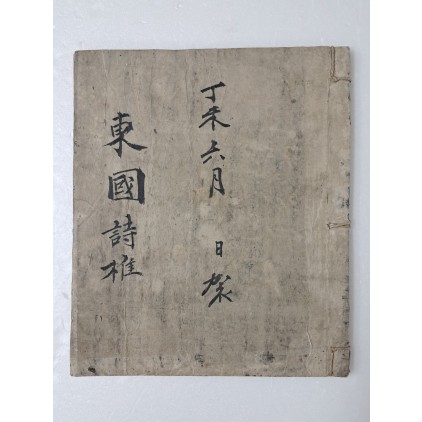 丁未六月 日
東國詩椎